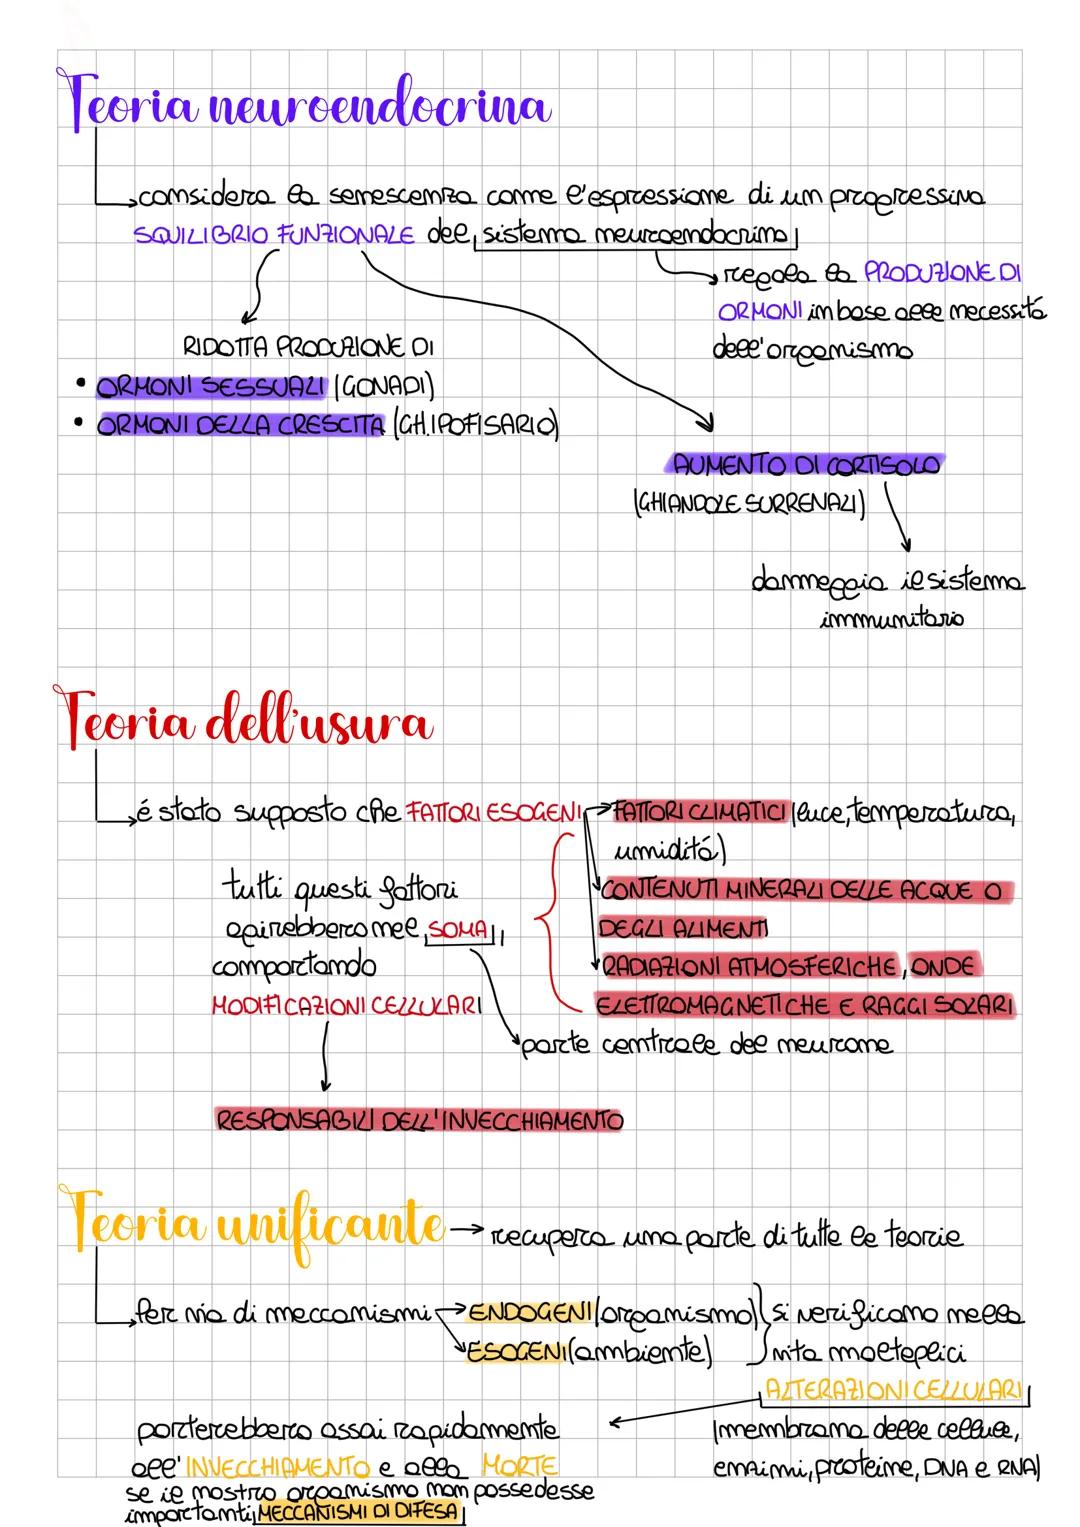 Teoria neuroendocrina
considera la senescenza come l'espressione di un progressivo
SQUILIBRIO FUNZIONALE del sistema neuroendocrino
regola la PRODUZIONE DI
ORMONI in base alle necessitá
dell'organismo
RIDOTTA PRODUZIONE DI
• ORMONI SESSUALI (GONADI)
• ORMONI DELLA CRESCITA (GH.IPOFISARIO)
AUMENTO DI CORTISOLO
(GHIANDOLE SURRENALI)
danneggia il sistema
immunitario
Teoria dell'usura
é stato supposto che FATTORI ESOGENI
FATTORI CLIMATICI (luce, temperatura,
umiditá)
CONTENUTI MINERALI DELLE ACQUE O
DEGLI ALIMENTI
RADIAZIONI ATMOSFERICHE, ONDE
ELETTROMAGNETICHE E RAGGI SOLARI
tutti questi fattori
agirebbero nel SOMA,
comportando
MODIFICAZIONI CELLULARI
parte centrale del neurone
RESPONSABILI DELL'INVECCHIAMENTO
Teoria unificante → recupera una parte di tutte le teorie
Per via di meccanismi ENDOGENI (organismo) si verificano nella
ESOGENI (ambiente) vita molteplici
ALTERAZIONI CELLULARI
(membrana delle cellule,
enzimi, proteine, DNA e RNA)
porterebbero assai rapidamente
all'INVECCHIAMENTO e alla MORTE
se il nostro organismo non possedesse
importanti MECCANISMI DI DIFESA